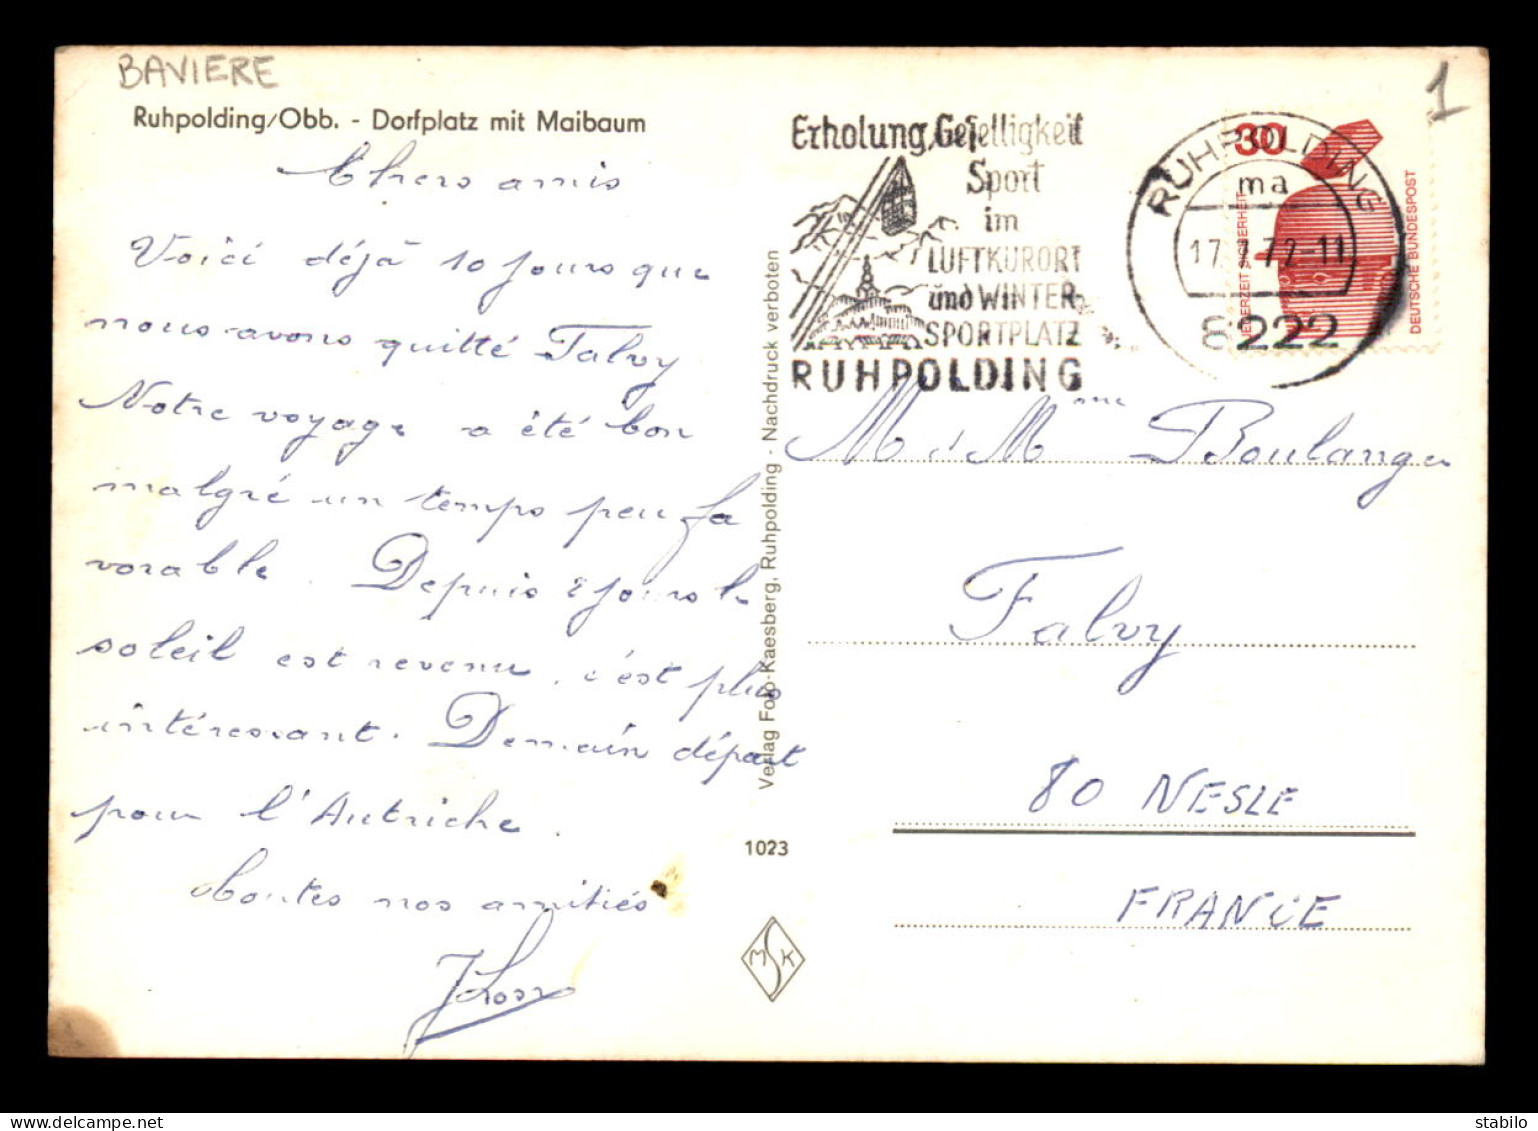 BAVIERE
1
Ruhpolding/Obb. - Dorfplatz mit Maibaum
Chers amis
Voici déjà 10 jours que
nous avons quitté Falvy
Notre voyage a été bon
malgré un temps peu fa
vorable. Depuis 2 jours le
soleil est revenu, c'est plus
intéressant. Demain départ
pour l'Autriche.
Toutes nos amitiés
Verlag Foto-Kaesberg, Ruhpolding - Nachdruck verboten
1023
MSK
Erholung, Geselligkeit
Sport
im
LUFTKURORT
und WINTER-
SPORTPLATZ
RUHPOLDING
RUHPOLDING
ma
8222
30
JEDERZEIT SICHERHEIT
DEUTSCHE BUNDESPOST
M & Mme Boulanger
Falvy
80 NESLE
FRANCE
www.delcampe.net
stabilo